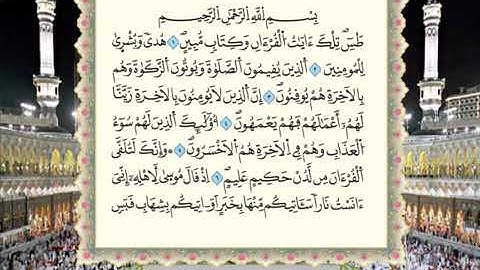 بِسْمِ اللَّهِ الرَّحْمَٰنِ الرَّحِيمِ
طسٓ تِلْكَ ءَايَٰتُ الْقُرْءَانِ وَكِتَابٍ مُّبِينٍ ۝١ هُدًى وَبُشْرَىٰ
لِلْمُومِنِينَ ۝٢ الَّذِينَ يُقِيمُونَ الصَّلَوٰةَ وَيُوتُونَ الزَّكَوٰةَ وَهُم
بِالَاخِرَةِ هُمْ يُوقِنُونَ ۝٣ إِنَّ الَّذِينَ لَا يُومِنُونَ بِالَاخِرَةِ زَيَّنَّا
لَهُمُۥٓ أَعْمَٰلَهُمْ فَهُمْ يَعْمَهُونَ ۝٤ أُوْلَٰٓئِكَ الَّذِينَ لَهُمْ سُوٓءُ
الْعَذَابِ وَهُمْ فِي الَاخِرَةِ هُمُ الَاخْسَرُونَ ۝٥ وَإِنَّكَ لَتُلَقَّى
الْقُرْءَانَ مِن لَّدُنْ حَكِيمٍ عَلِيمٍ ۝٦ اِذْ قَالَ مُوسَىٰ لِأَهْلِهِۦٓ إِنِّيَ
ءَانَسْتُ نَارًا سَـَٔاتِيكُم مِّنْهَا بِخَبَرٍ اَوَ اتِيكُم بِشِهَابِ قَبَسٍ